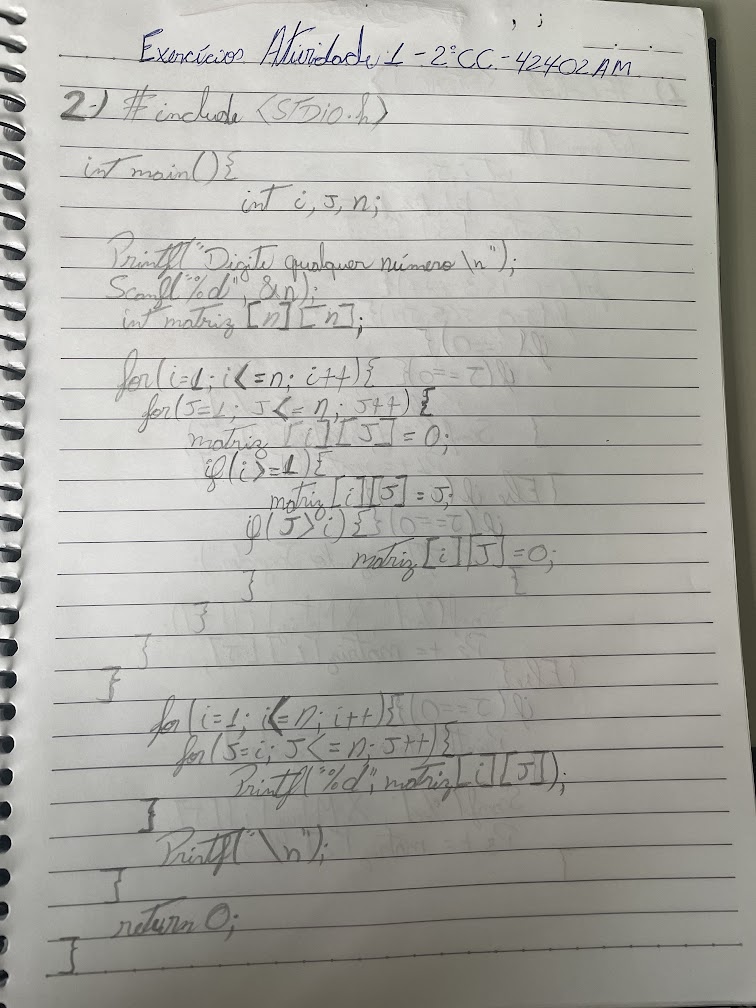 Exercícios Atividade 1 - 2ºCC - 42402AM
2-) #include <STDio.h>
int main(){
int i, J, n;
Printf("Digite qualquer número \n");
Scanf("%d", &n);
int matriz [n][n];
for(i=1; i<=n; i++){
for(J=1; J<=n; J++){
matriz [i][J] = 0;
if(i>=1){
matriz[i][J] = J;
if(J>i){
matriz[i][J]=0;
}
}
}
}
for(i=1; i<=n; i++){
for(J=i; J<=n; J++){
Printf("%d", matriz[i][J]);
}
Printf("\n");
}
return 0;
}